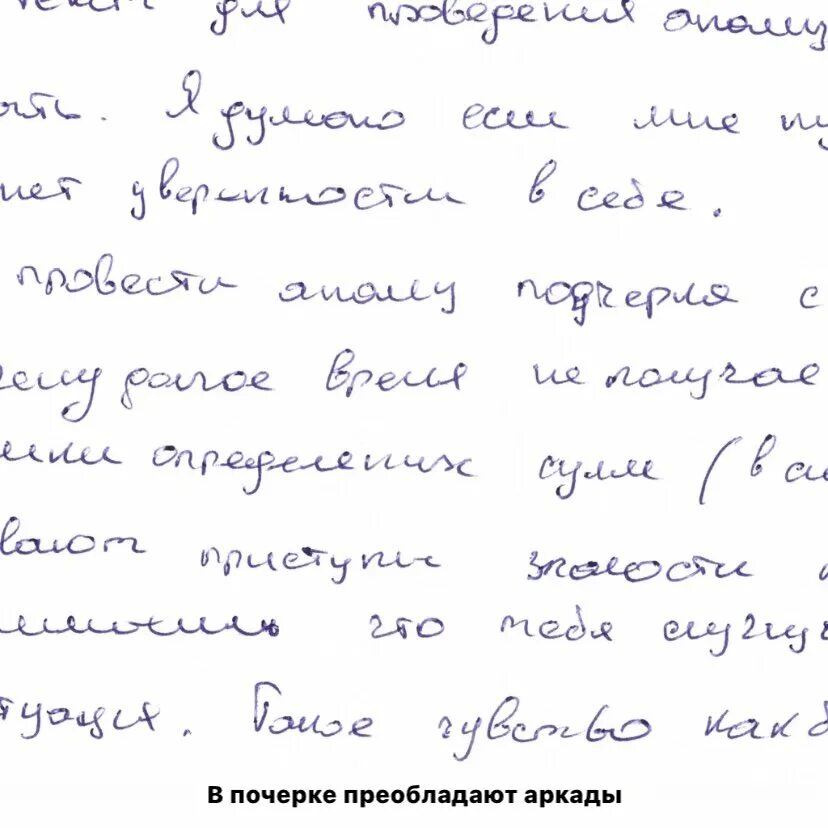 текст для проведения анализ
ыть. Я думаю если мне пу
нет уверенности в себе.
провести анализ подчерка с
чему долгое время не получае
определенных сумм (в си
вают приступы злости
что тебя
туация. Такое чувство как б
В почерке преобладают аркады